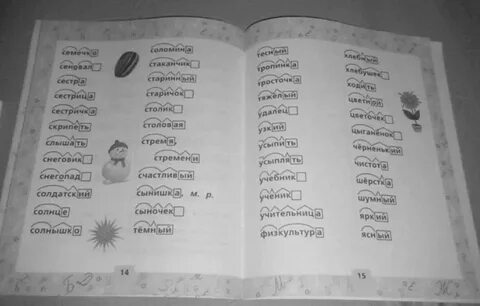 семечко
сеновал
сестра
сестрица
сестричка
скрипеть
слышать
снеговик
снегопад
солдатский
солнце
солнышко
соломина
стаканчик
старинный
старичок
столик
столовая
стремя
стремени
счастливый
сынишка, м. р.
сыночек
тёмный
14
тесный
тропинка
тросточка
тяжёлый
удалец
узкий
усыпить
усыплять
учебник
ученик
учительница
физкультура
хлебный
хлебушек
ходить
цветной
цветочек
цыганёнок
чёрненький
чистота
шёрстка
шумный
яркий
ясный
15